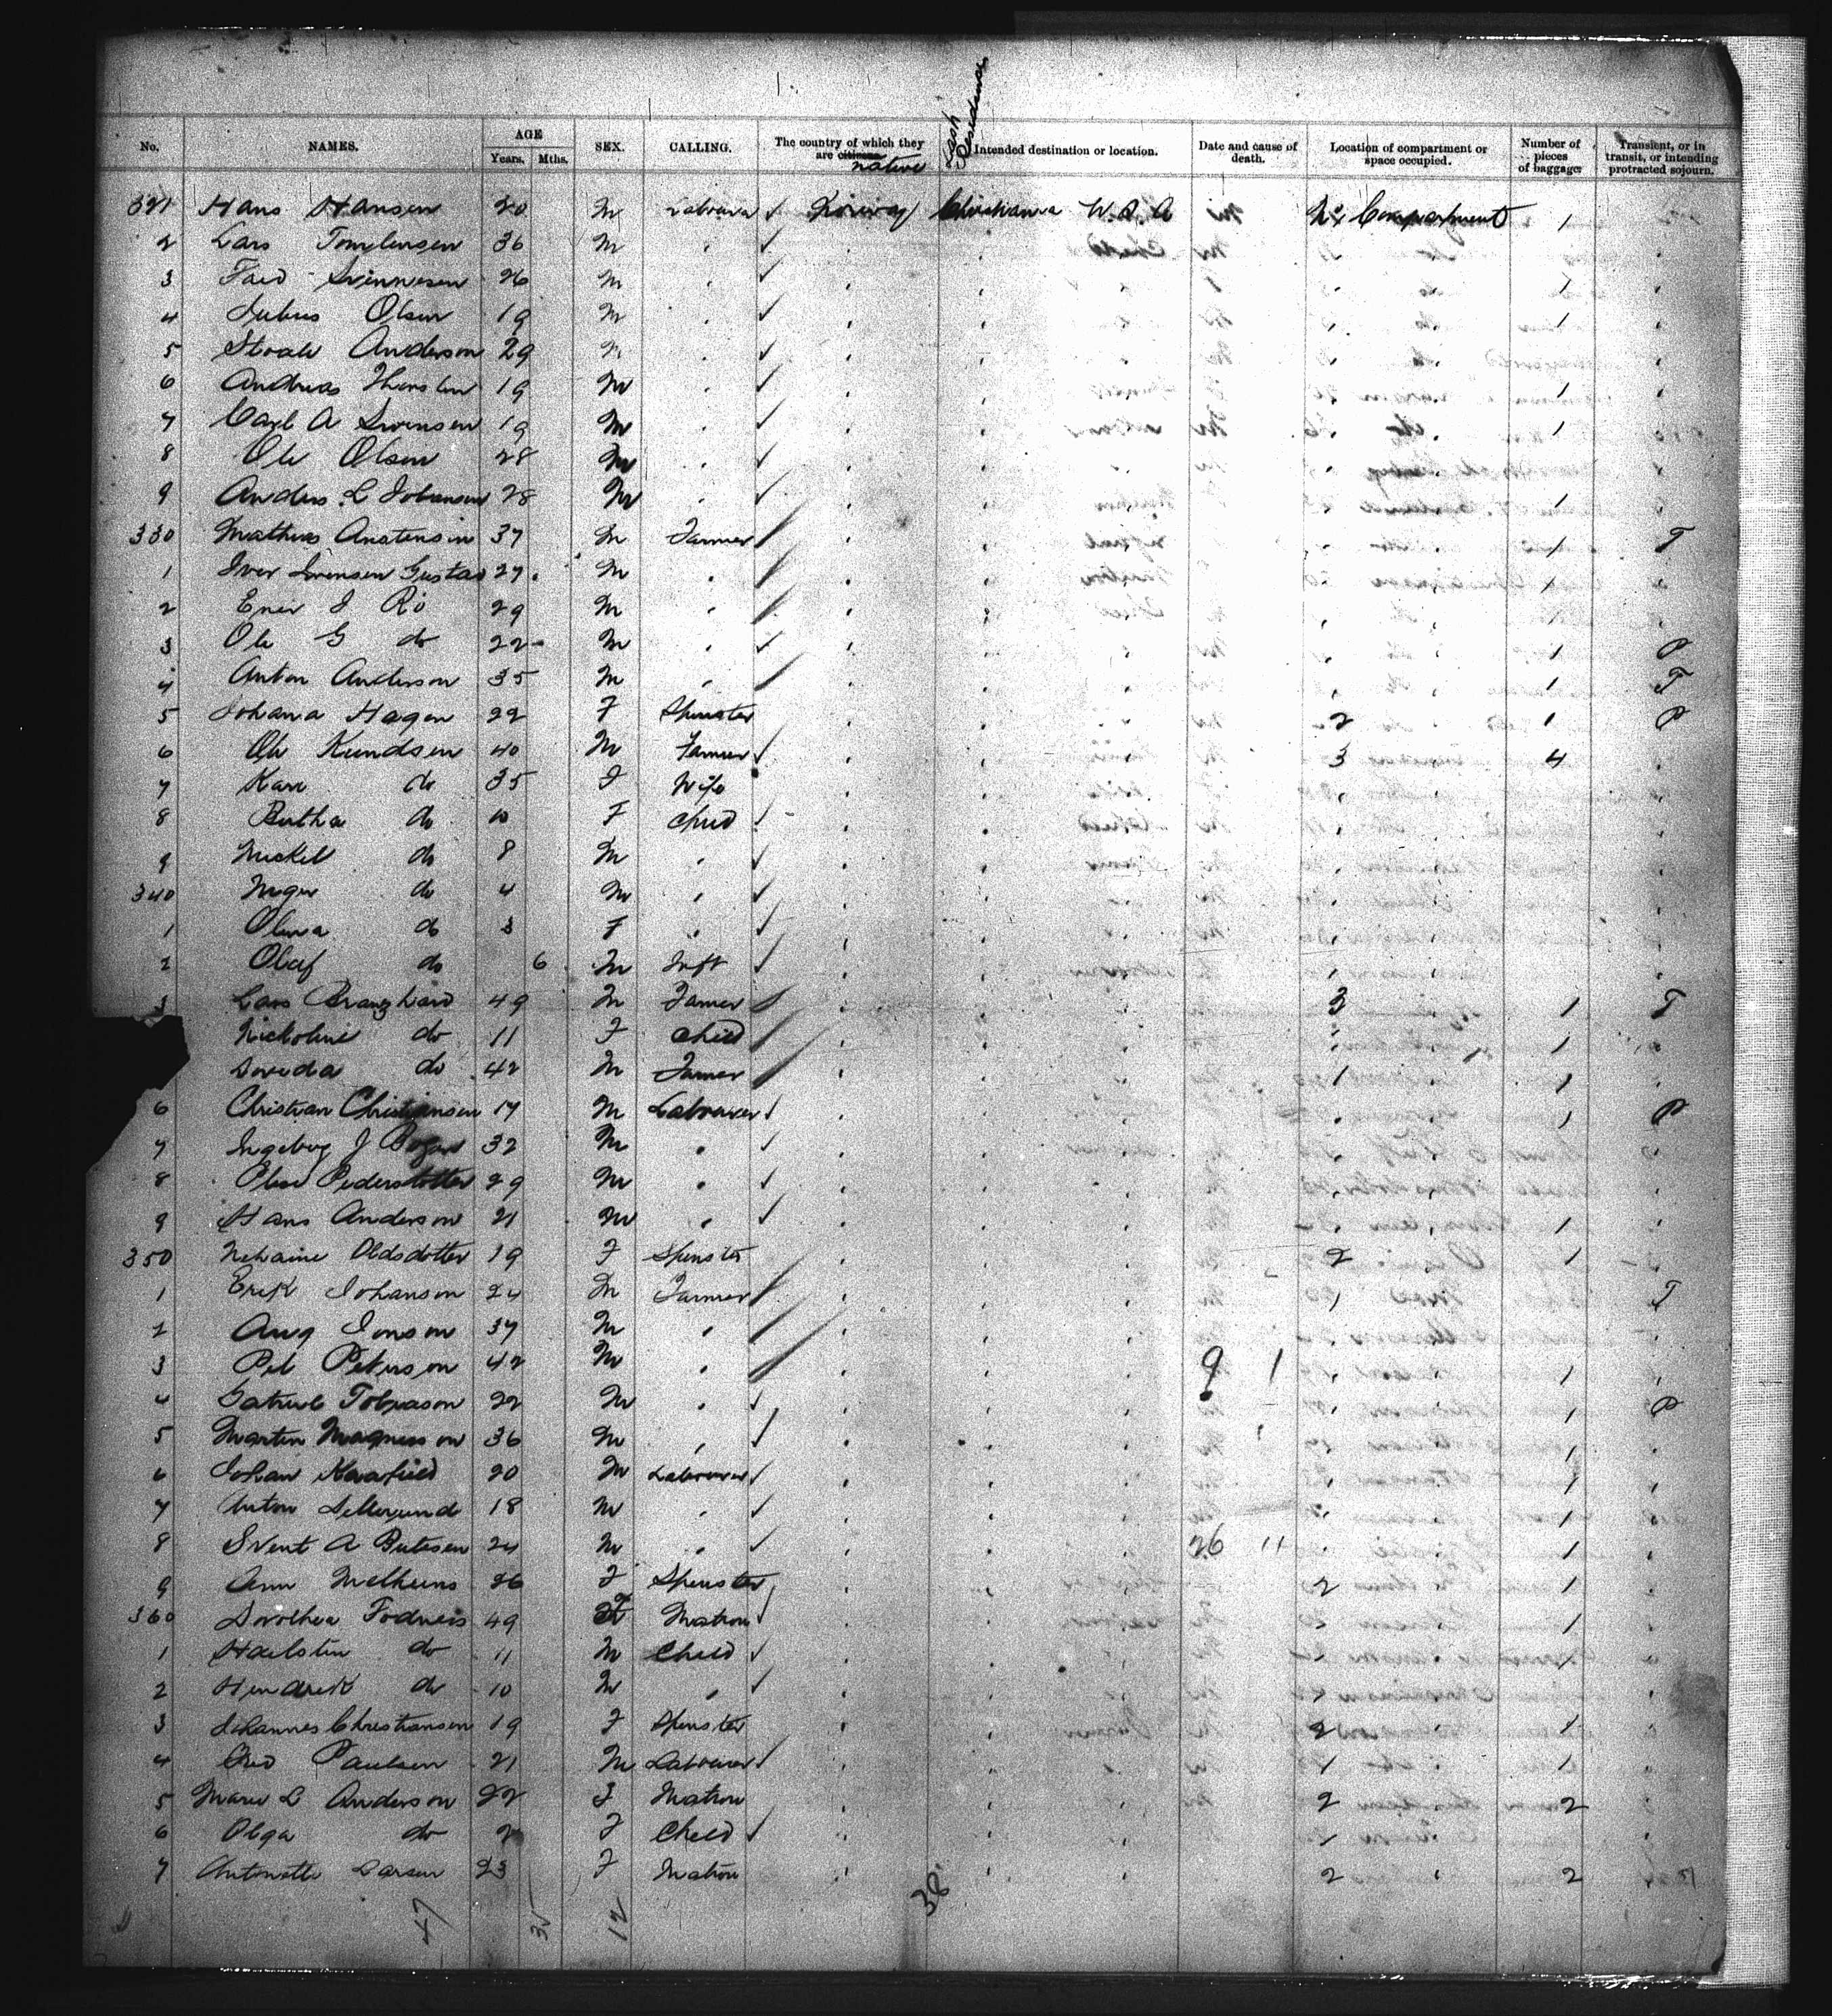 No. NAMES. AGE Years. Mths. SEX. CALLING. The country of which they are citizens native Last Residence Intended destination or location. Date and cause of death. Location of compartment or space occupied. Number of pieces of baggage Transient, or in transit, or intending protracted sojourn.
321 Hans Hansen 20 M Labourer Norway Christiania U.S.A No 1 Compartment 1
2 Lars 36 M
3 26 M 1
4 Julius Olsen 19 M 1
5 Anderson 29 M
6 Andreas 19 M 1
7 Carl A Svensen 19 M 1
8 Ole Olsen 28 M
9 Anders L Johansen 28 M 1
330 Mathias Anstensin 37 M Farmer 1 T
1 Iver Svensen Gustad 27 M 1
2 J Rö 29 M
3 Ole G do 22 M 1 P
4 Anton Anderson 35 M 1 T
5 Johana Hagen 22 F Spinster 2 1 P
6 Ole Kundsen 40 M Farmer 3 4
7 Kari do 35 F Wife
8 Bertha do 10 F Child
9 Mickel do 8 M
340 do 4 M
1 Olena do 3 F
2 Olaf do 6 M Inft
3 Lars 49 M Farmer 3 1 T
Nickoline do 11 F Child 1
do 42 M Farmer 1 1
6 Christian Christiansen 17 M Labourer 1 P
7 Ingebog J 32 M
8 Else Pedersdotter 29 M
9 Hans Anderson 21 M 1
350 Oldsdotter 19 F Spinster 2 1
1 Erik Johanson 24 M Farmer 1 T
2 Aug Jonson 37 M
3 Pet Peterson 42 M 9 1 1
4 Tobiason 22 M 1 P
5 Martin Magnusson 36 M 1
6 Johan 20 M Labourer 1
7 Anton 18 M
8 A 24 M 26 11 1
9 Ann 26 F Spinster 2 1
360 Dorothea 49 F Matron 1
1 do 11 M Child 1
2 Hendrek do 10 M
3 Johannes Christiansen 19 F Spinster 2 1
4 Paulsen 21 M Labourer 1 1
5 Marie L Anderson 22 F Matron 2 2
6 Olga do 2 F Child 1
7 Antonette Larsen 23 F Matron 2 2
47 35 12 38